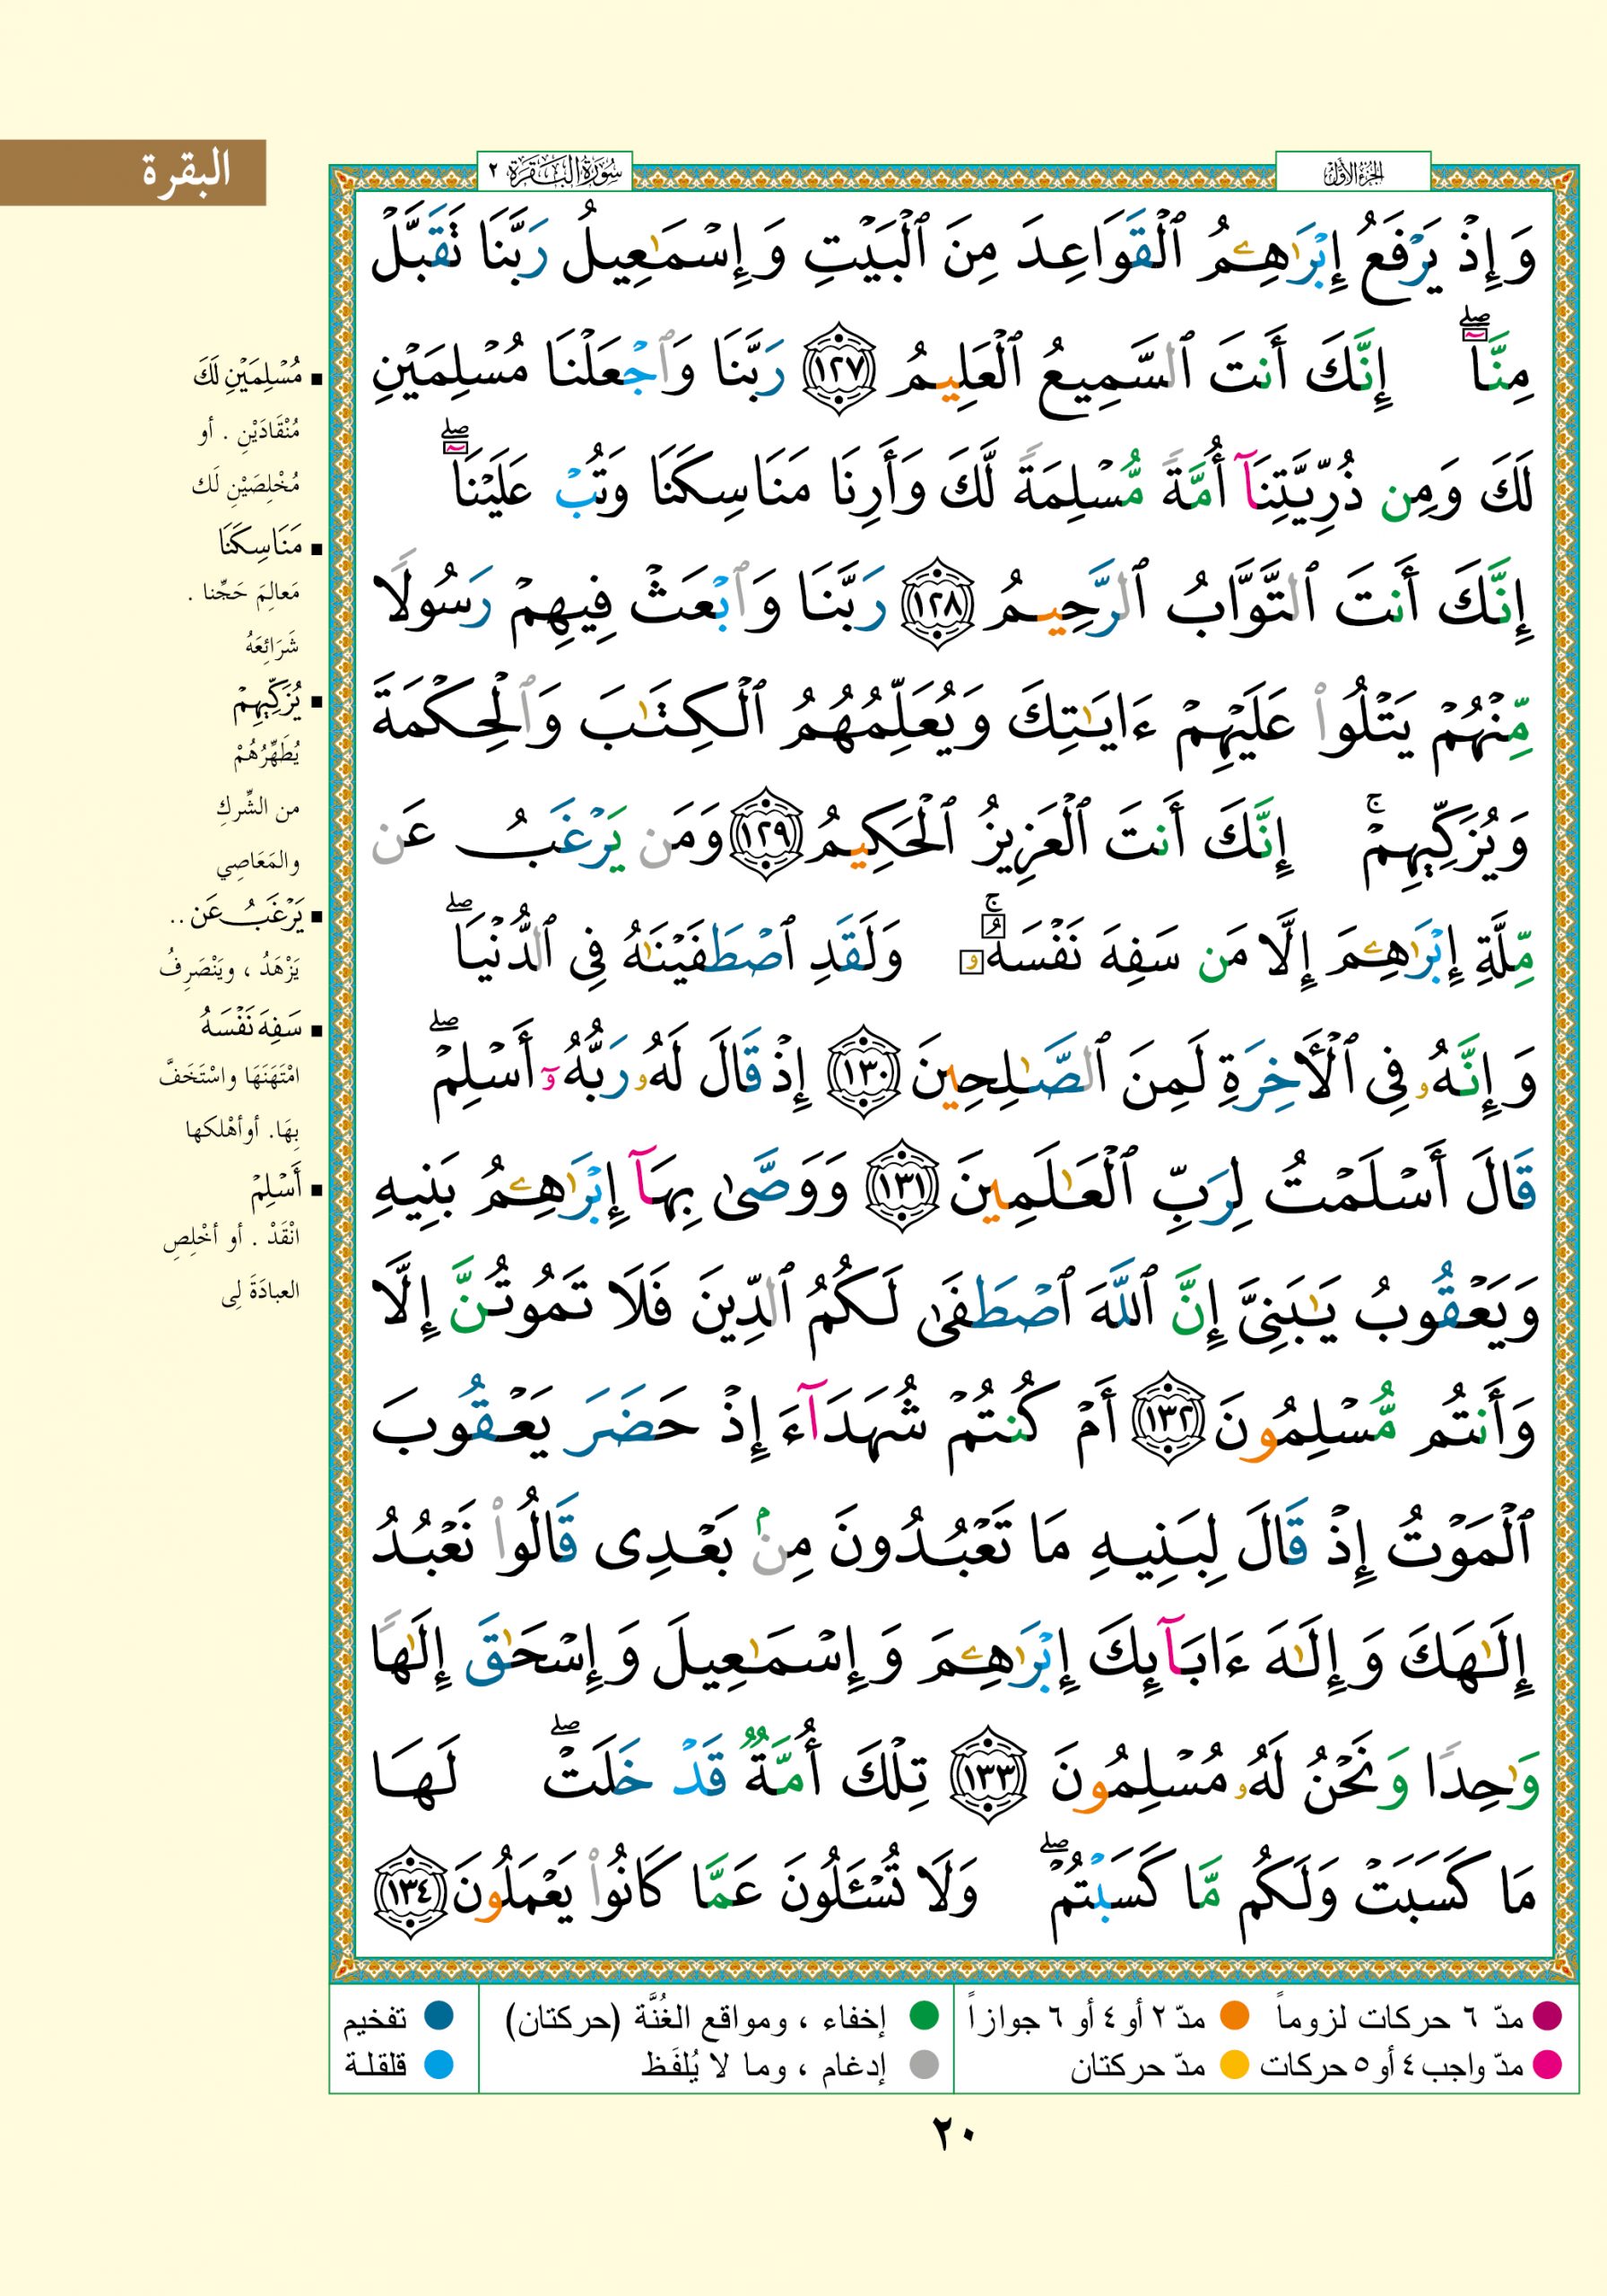 البقرة
الجزء الأول
سورة البقرة ٢
وَإِذْ يَرْفَعُ إِبْرَٰهِـۧمُ ٱلْقَوَاعِدَ مِنَ ٱلْبَيْتِ وَإِسْمَـٰعِيلُ رَبَّنَا تَقَبَّلْ
مِنَّآ ۖ إِنَّكَ أَنتَ ٱلسَّمِيعُ ٱلْعَلِيمُ ١٢٧ رَبَّنَا وَٱجْعَلْنَا مُسْلِمَيْنِ
لَكَ وَمِن ذُرِّيَّتِنَآ أُمَّةً مُّسْلِمَةً لَّكَ وَأَرِنَا مَنَاسِكَنَا وَتُبْ عَلَيْنَآ ۖ
إِنَّكَ أَنتَ ٱلتَّوَّابُ ٱلرَّحِيمُ ١٢٨ رَبَّنَا وَٱبْعَثْ فِيهِمْ رَسُولًا
مِّنْهُمْ يَتْلُوا۟ عَلَيْهِمْ ءَايَـٰتِكَ وَيُعَلِّمُهُمُ ٱلْكِتَـٰبَ وَٱلْحِكْمَةَ
وَيُزَكِّيهِمْ ۚ إِنَّكَ أَنتَ ٱلْعَزِيزُ ٱلْحَكِيمُ ١٢٩ وَمَن يَرْغَبُ عَن
مِّلَّةِ إِبْرَٰهِـۧمَ إِلَّا مَن سَفِهَ نَفْسَهُۥ ۚ وَلَقَدِ ٱصْطَفَيْنَـٰهُ فِى ٱلدُّنْيَا ۖ
وَإِنَّهُۥ فِى ٱلْـَٔاخِرَةِ لَمِنَ ٱلصَّـٰلِحِينَ ١٣٠ إِذْ قَالَ لَهُۥ رَبُّهُۥٓ أَسْلِمْ ۖ
قَالَ أَسْلَمْتُ لِرَبِّ ٱلْعَـٰلَمِينَ ١٣١ وَوَصَّىٰ بِهَآ إِبْرَٰهِـۧمُ بَنِيهِ
وَيَعْقُوبُ يَـٰبَنِىَّ إِنَّ ٱللَّهَ ٱصْطَفَىٰ لَكُمُ ٱلدِّينَ فَلَا تَمُوتُنَّ إِلَّا
وَأَنتُم مُّسْلِمُونَ ١٣٢ أَمْ كُنتُمْ شُهَدَآءَ إِذْ حَضَرَ يَعْقُوبَ
ٱلْمَوْتُ إِذْ قَالَ لِبَنِيهِ مَا تَعْبُدُونَ مِنۢ بَعْدِى قَالُوا۟ نَعْبُدُ
إِلَـٰهَكَ وَإِلَـٰهَ ءَابَآئِكَ إِبْرَٰهِـۧمَ وَإِسْمَـٰعِيلَ وَإِسْحَـٰقَ إِلَـٰهًا
وَٰحِدًا وَنَحْنُ لَهُۥ مُسْلِمُونَ ١٣٣ تِلْكَ أُمَّةٌ قَدْ خَلَتْ ۖ لَهَا
مَا كَسَبَتْ وَلَكُم مَّا كَسَبْتُمْ ۖ وَلَا تُسْـَٔلُونَ عَمَّا كَانُوا۟ يَعْمَلُونَ ١٣٤
■ مُسْلِمَيْنِ لَكَ
مُنْقَادَيْنِ . أو
مُخْلِصَيْنِ لَك
■ مَنَاسِكَنَا
مَعالِمَ حَجِّنا .
شَرَائِعَهُ
■ يُزَكِّيهِمْ
يُطَهِّرُهُمْ
من الشِّركِ
والمَعَاصِي
■ يَرْغَبُ عَن ..
يَزْهَدُ ، ويَنْصَرِفُ
■ سَفِهَ نَفْسَهُ
امْتَهَنَهَا واسْتَخَفَّ
بِهَا. أوأهْلكها
■ أَسْلِمْ
انْقَدْ . أو أخْلِصِ
العبادَةَ لِى
مدّ ٦ حركات لزوماً ● مدّ ٢ أو ٤ أو ٦ جوازاً ● إخفاء ، ومواقع الغُنَّة (حركتان) ● تفخيم
مدّ واجب ٤ أو ٥ حركات ● مدّ حركتان ● إدغام ، وما لا يُلفَظ ● قلقلة
٢٠